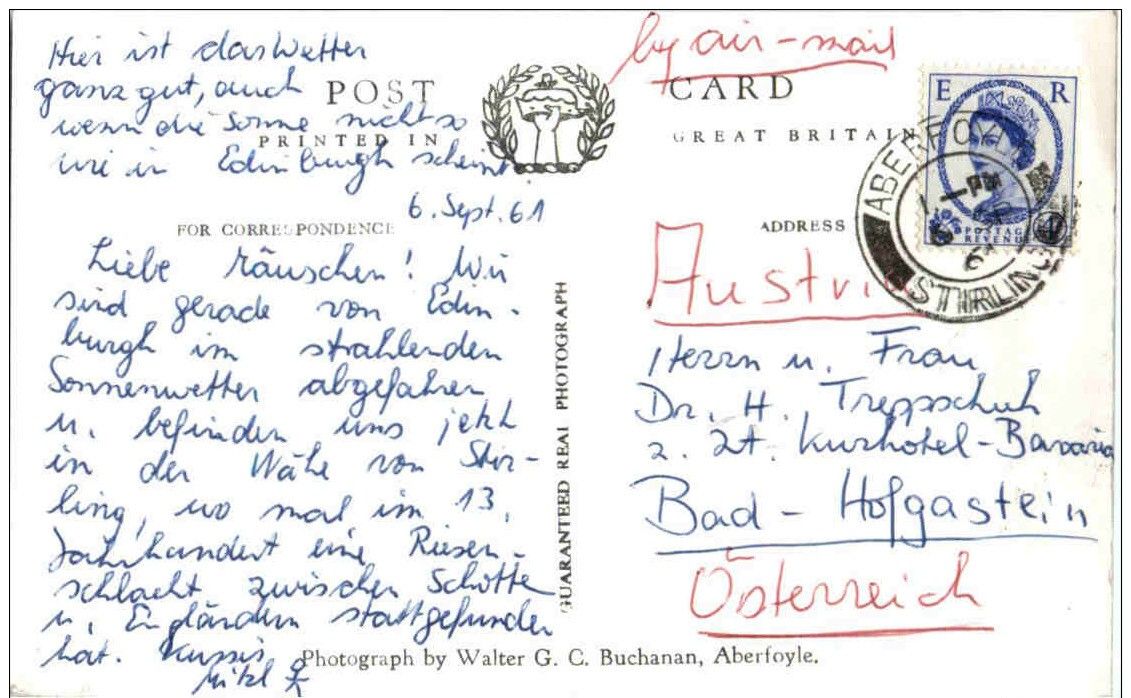 Hier ist das Wetter
ganz gut, auch
wenn die Sonne nicht so
wie in Edinburgh scheint!
6. Sept. 61
POST CARD
PRINTED IN GREAT BRITAIN
FOR CORRESPONDENCE
Liebe Mäuschen! Wir
sind gerade von Edin-
burgh im strahlenden
Sonnenwetter abgefahren
u. befinden uns jetzt
in der Nähe von Stir-
ling, wo mal im 13.
Jahrhundert eine Riesen-
schlacht zwischen Schotten
u. Engländern stattgefunden
hat. Kussis
GUARANTEED REAL PHOTOGRAPH
Photograph by Walter G. C. Buchanan, Aberfoyle.
by air-mail
E R
POSTAGE
REVENUE
ABERFOYLE
1 - PM
STIRLING
ADDRESS
Austria
Herrn u. Frau
Dr. H. Treppschuh
z. Zt. Kurhotel-Bavaria
Bad-Hofgastein
Österreich